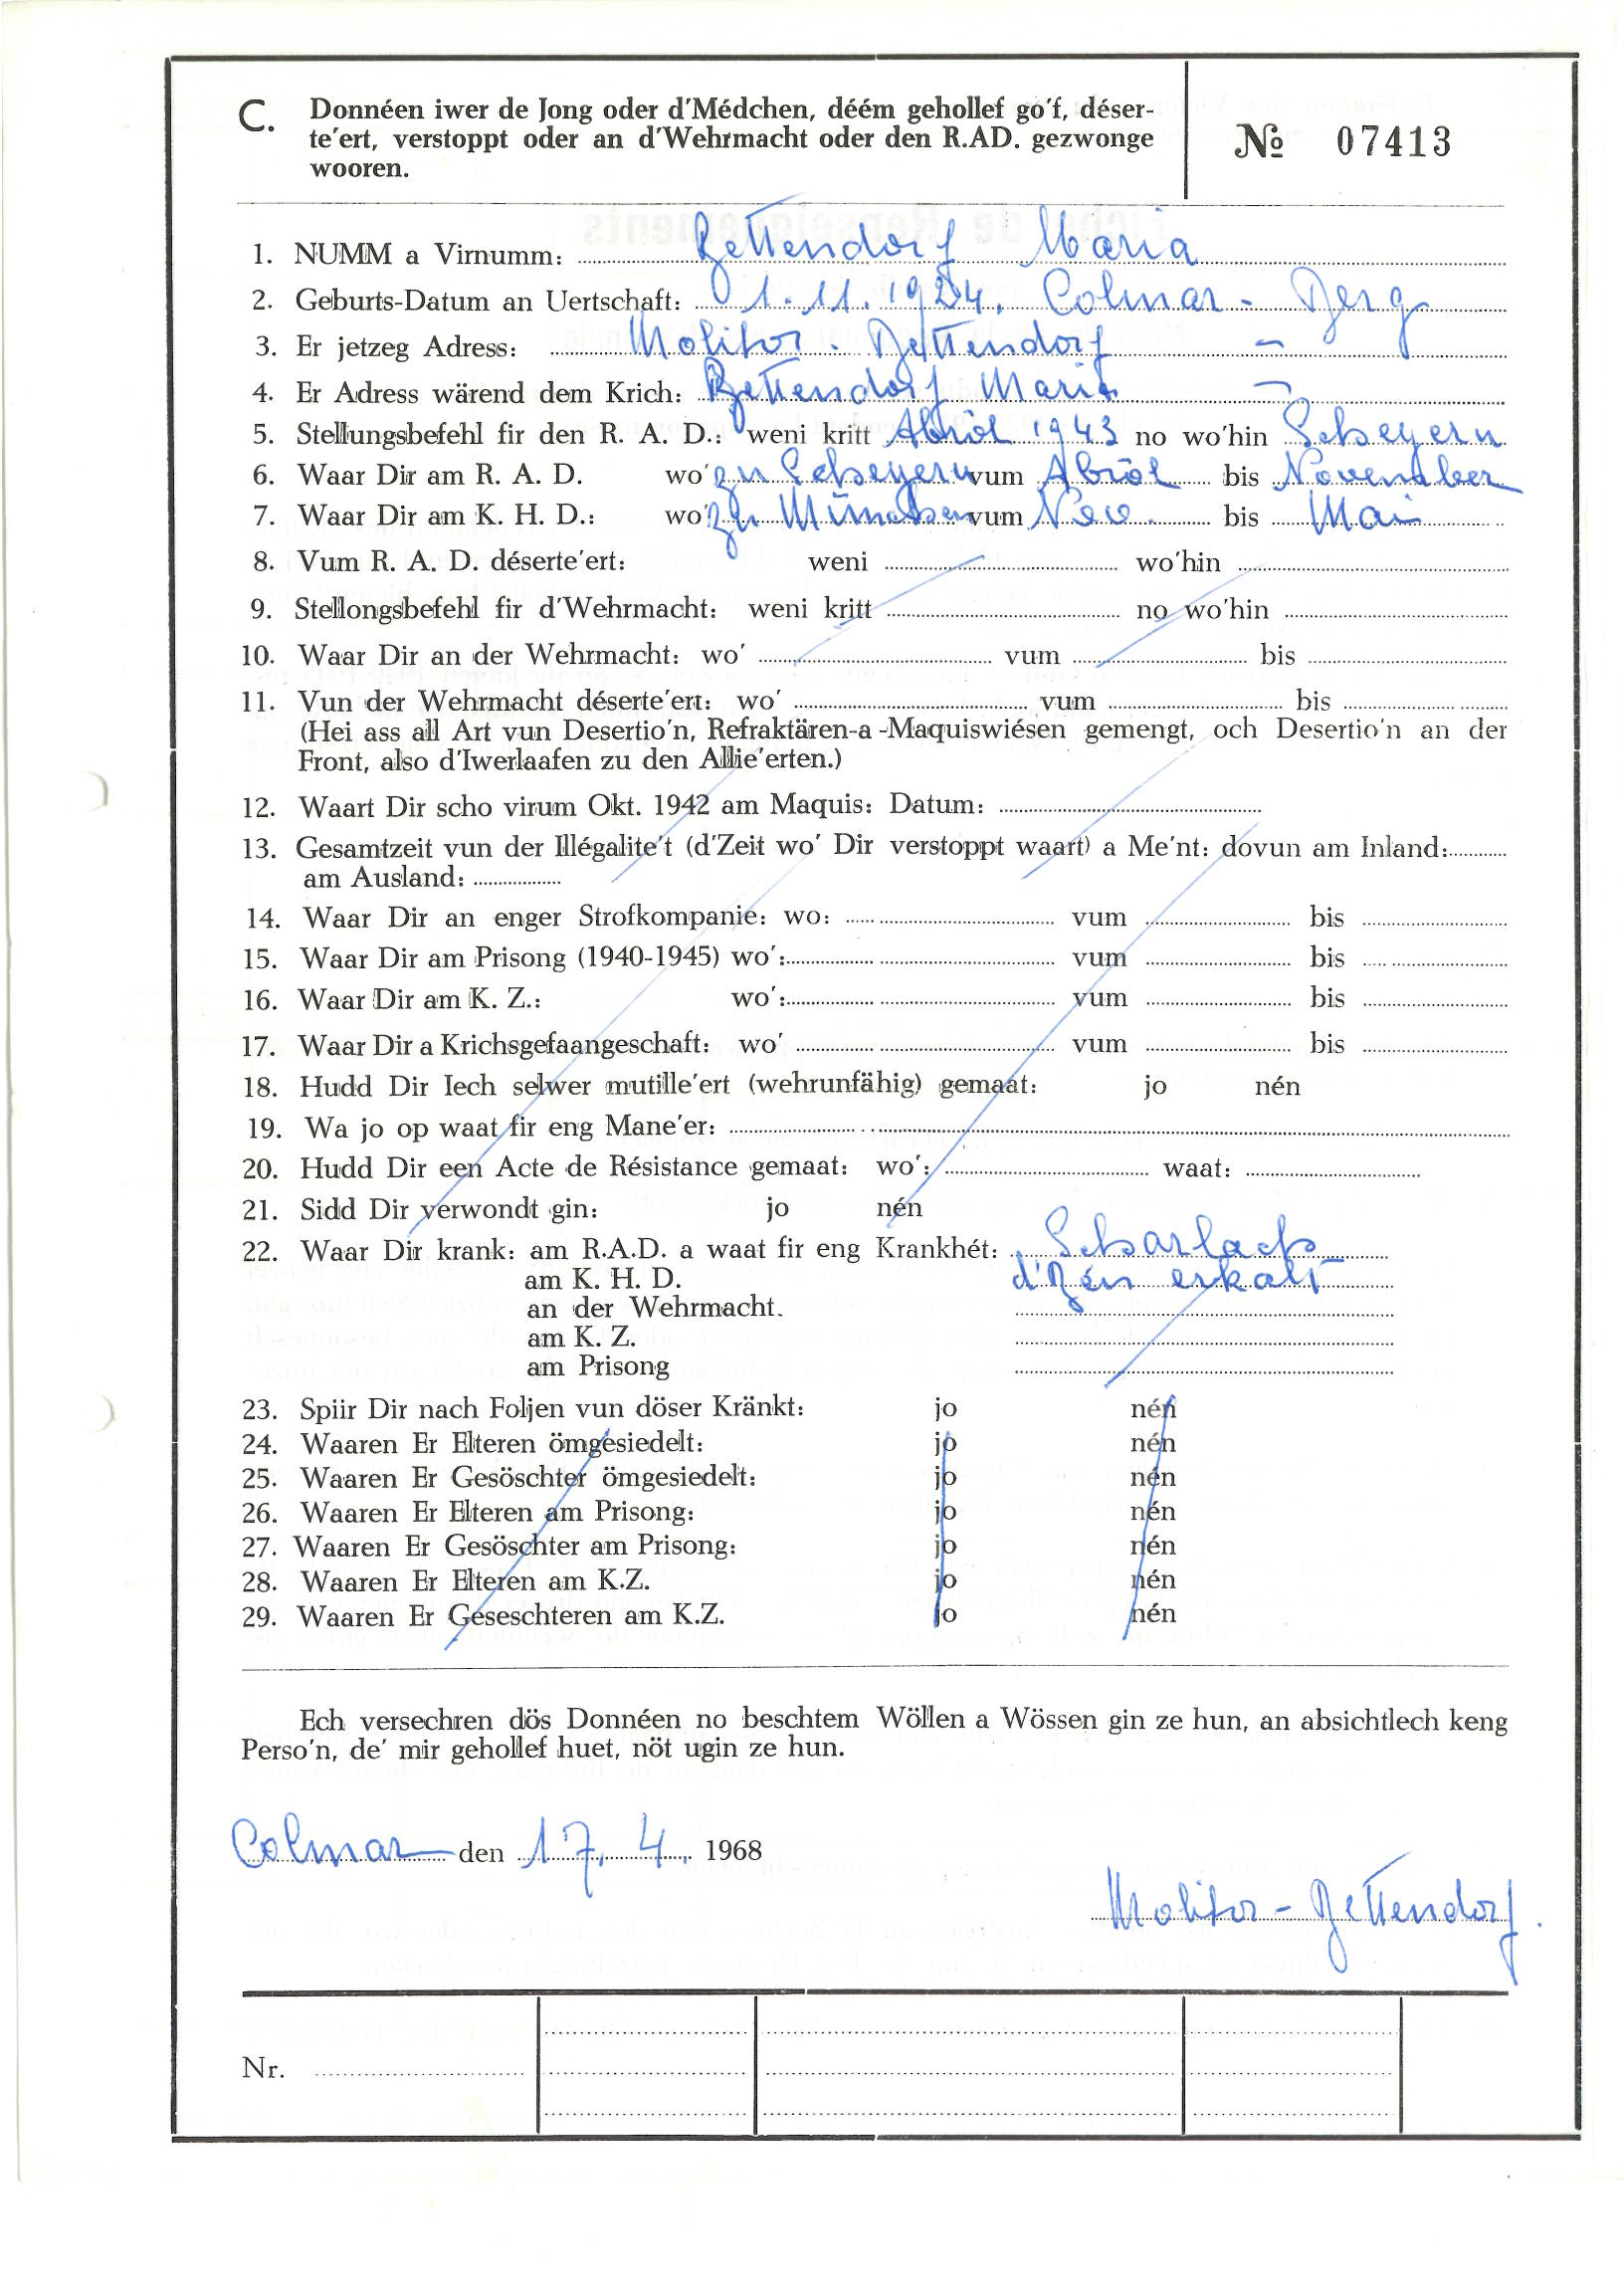 C. Donnéen iwer de Jong oder d'Médchen, déém gehollef go'f, déser-
te'ert, verstoppt oder an d'Wehrmacht oder den R.AD. gezwonge
wooren.
№ 07413
1. NUMM a Virnumm: Bettendorf Maria
2. Geburts-Datum an Uertschaft: 1.11.1924. Colmar - Berg
3. Er jetzeg Adress: Molitor - Bettendorf -
4. Er Adress wärend dem Krich: Bettendorf Maria -
5. Stellungsbefehl fir den R. A. D.: weni kritt Abröl 1943 no wo'hin Scheyern
6. Waar Dir am R. A. D. wo' zu Scheyern vum Abröl bis November
7. Waar Dir am K. H. D.: wo' zu München vum Nov. bis Mai
8. Vum R. A. D. déserte'ert: weni wo'hin
9. Stellongsbefehl fir d'Wehrmacht: weni kritt no wo'hin
10. Waar Dir an der Wehrmacht: wo' vum bis
11. Vun der Wehrmacht déserte'ert: wo' vum bis
(Hei ass all Art vun Desertio'n, Refraktären-a-Maquiswiésen gemengt, och Desertio'n an der
Front, also d'Iwerlaafen zu den Allie'erten.)
12. Waart Dir scho virum Okt. 1942 am Maquis: Datum:
13. Gesamtzeit vun der Illégalite't (d'Zeit wo' Dir verstoppt waart) a Me'nt: dovun am Inland:
am Ausland:
14. Waar Dir an enger Strofkompanie: wo: vum bis
15. Waar Dir am Prisong (1940-1945) wo': vum bis
16. Waar Dir am K. Z.: wo': vum bis
17. Waar Dir a Krichsgefaangeschaft: wo' vum bis
18. Hudd Dir Iech selwer mutille'ert (wehrunfähig) gemaat: jo nén
19. Wa jo op waat fir eng Mane'er:
20. Hudd Dir een Acte de Résistance gemaat: wo': waat:
21. Sidd Dir verwondt gin: jo nén
22. Waar Dir krank: am R.A.D. a waat fir eng Krankhét: Scharlach
am K. H. D. d'Rén erkalt
an der Wehrmacht.
am K. Z.
am Prisong
23. Spiir Dir nach Foljen vun döser Kränkt: jo nén
24. Waaren Er Elteren ömgesiedelt: jo nén
25. Waaren Er Gesöschter ömgesiedelt: jo nén
26. Waaren Er Elteren am Prisong: jo nén
27. Waaren Er Gesöschter am Prisong: jo nén
28. Waaren Er Elteren am K.Z. jo nén
29. Waaren Er Geseschteren am K.Z. jo nén
Ech versechren dös Donnéen no beschtem Wöllen a Wössen gin ze hun, an absichtlech keng
Perso'n, de' mir gehollef huet, nöt ugin ze hun.
Colmar den 17. 4. 1968
Molitor - Bettendorf.
Nr.